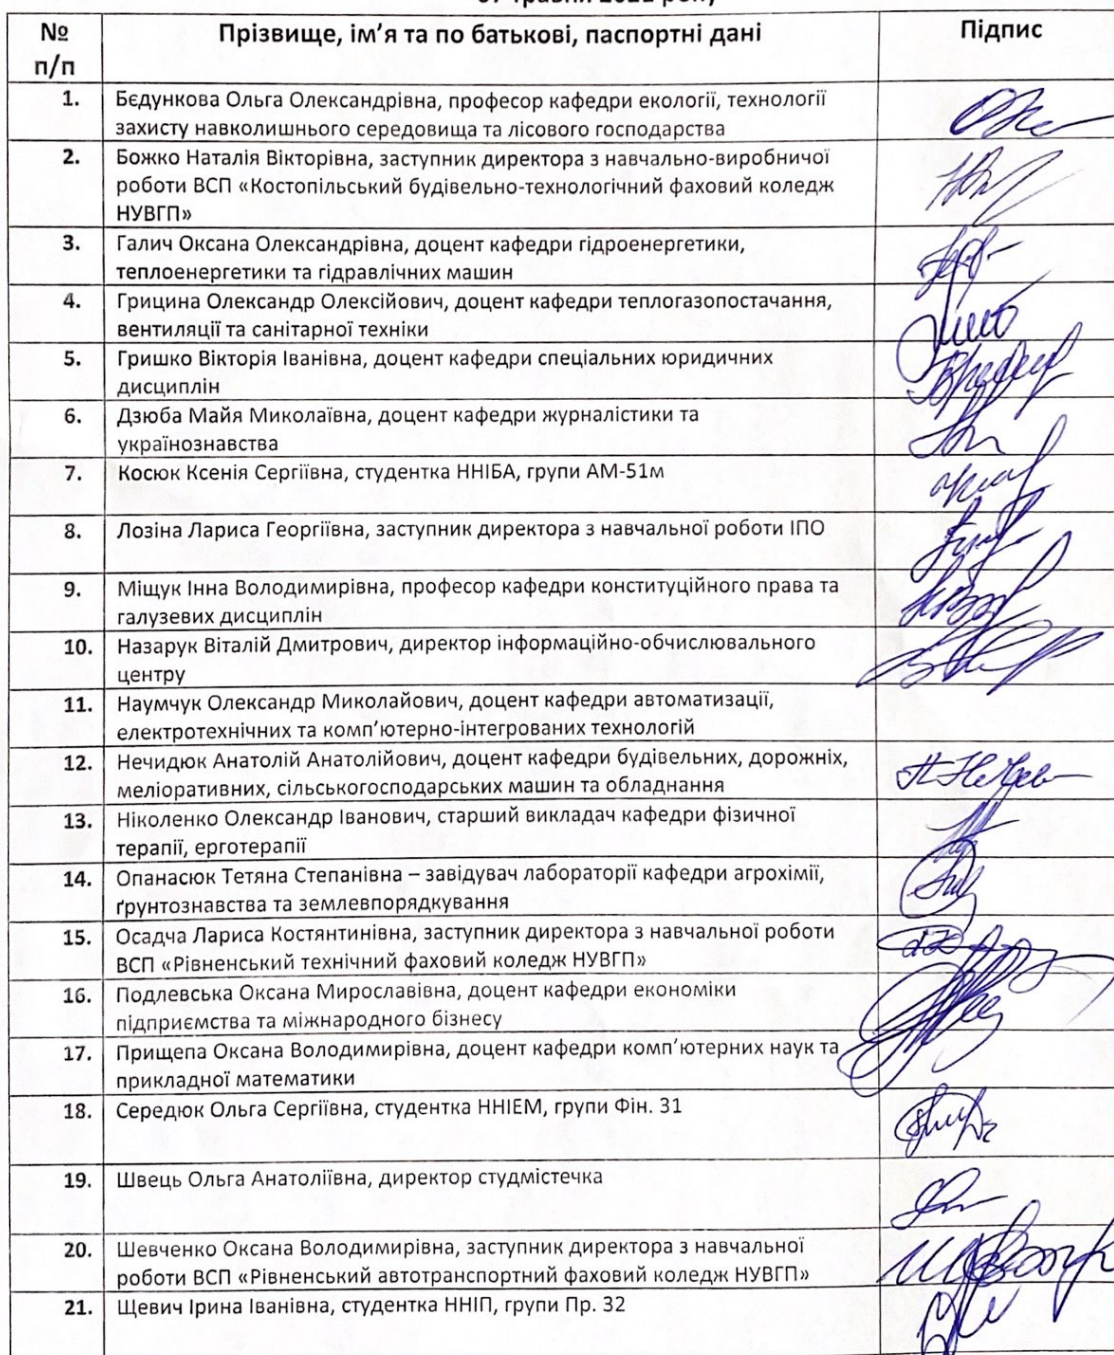 № Прізвище, ім’я та по батькові, паспортні дані Підпис
п/п
1. Бєдункова Ольга Олександрівна, професор кафедри екології, технології
захисту навколишнього середовища та лісового господарства
2. Божко Наталія Вікторівна, заступник директора з навчально-виробничої
роботи ВСП «Костопільський будівельно-технологічний фаховий коледж
НУВГП»
3. Галич Оксана Олександрівна, доцент кафедри гідроенергетики,
теплоенергетики та гідравлічних машин
4. Грицина Олександр Олексійович, доцент кафедри теплогазопостачання,
вентиляції та санітарної техніки
5. Гришко Вікторія Іванівна, доцент кафедри спеціальних юридичних
дисциплін
6. Дзюба Майя Миколаївна, доцент кафедри журналістики та
українознавства
7. Косюк Ксенія Сергіївна, студентка ННІБА, групи АМ-51м
8. Лозіна Лариса Георгіївна, заступник директора з навчальної роботи ІПО
9. Міщук Інна Володимирівна, професор кафедри конституційного права та
галузевих дисциплін
10. Назарук Віталій Дмитрович, директор інформаційно-обчислювального
центру
11. Наумчук Олександр Миколайович, доцент кафедри автоматизації,
електротехнічних та комп’ютерно-інтегрованих технологій
12. Нечидюк Анатолій Анатолійович, доцент кафедри будівельних, дорожніх,
меліоративних, сільськогосподарських машин та обладнання
13. Ніколенко Олександр Іванович, старший викладач кафедри фізичної
терапії, ерготерапії
14. Опанасюк Тетяна Степанівна – завідувач лабораторії кафедри агрохімії,
ґрунтознавства та землевпорядкування
15. Осадча Лариса Костянтинівна, заступник директора з навчальної роботи
ВСП «Рівненський технічний фаховий коледж НУВГП»
16. Подлевська Оксана Мирославівна, доцент кафедри економіки
підприємства та міжнародного бізнесу
17. Прищепа Оксана Володимирівна, доцент кафедри комп’ютерних наук та
прикладної математики
18. Середюк Ольга Сергіївна, студентка ННІЕМ, групи Фін. 31
19. Швець Ольга Анатоліївна, директор студмістечка
20. Шевченко Оксана Володимирівна, заступник директора з навчальної
роботи ВСП «Рівненський автотранспортний фаховий коледж НУВГП»
21. Щевич Ірина Іванівна, студентка ННІП, групи Пр. 32